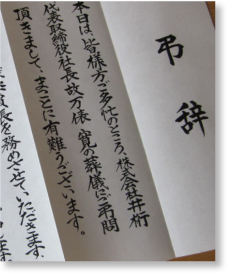 弔辞
本日は、皆様方ご多忙のところ、株式会社井桁
代表取締役社長故万俵 寛の葬儀にご弔問
頂きまして、まことに有難うございます。
長を務めさせていただきます